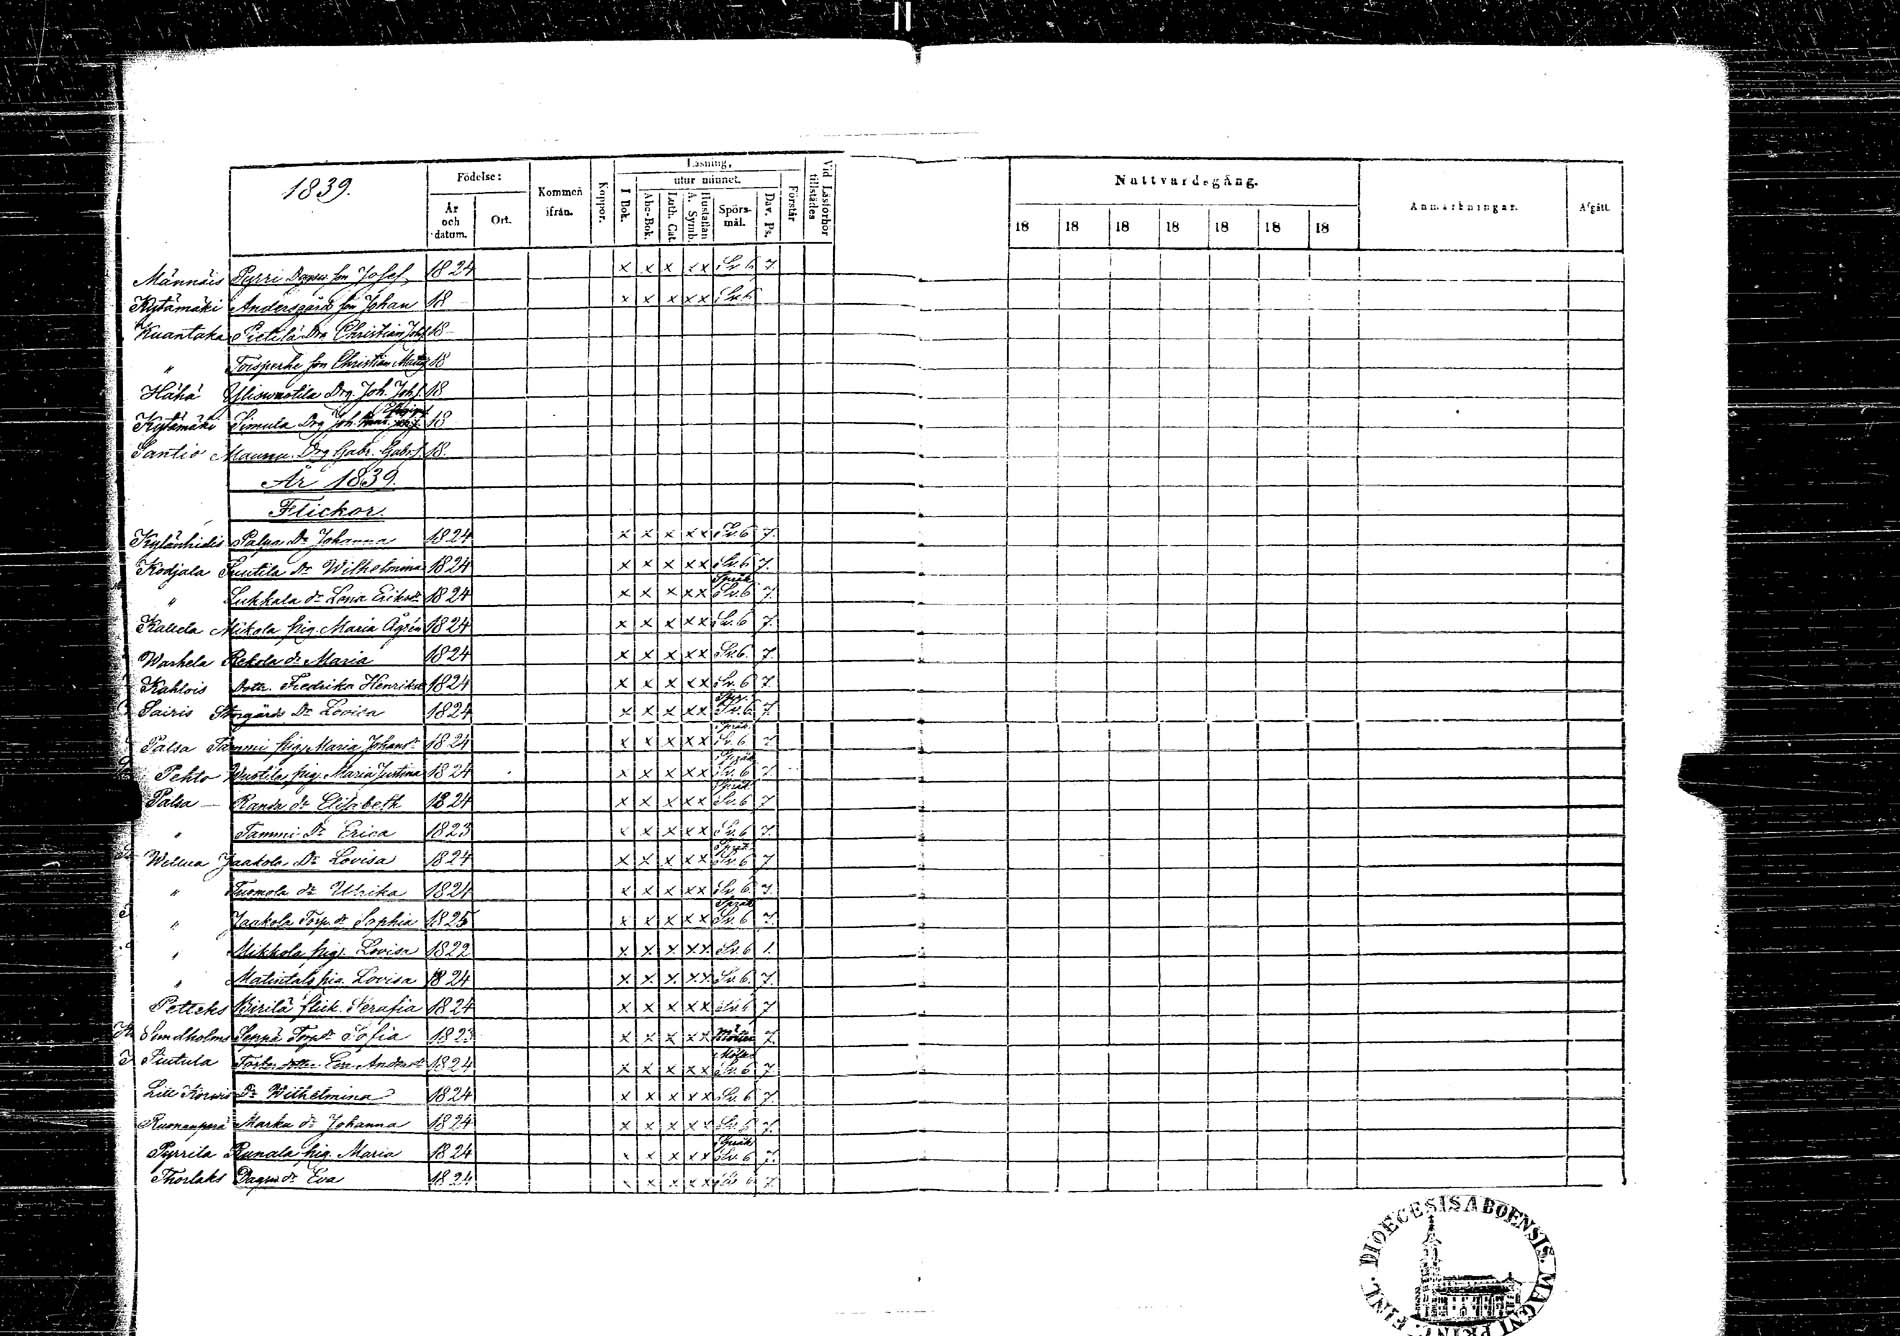 1839.
Födelse:
År och datum.
Ort.
Kommen ifrån.
Koppor.
Läsning,
I Bok.
utur minnet.
Abc-Bok.
Luth. Cat.
A. Symb.
Hustaflan
Spörsmål.
Dav. Ps.
Förstår
Vid Läsförhör tillstädes
Nattvardsgång.
18 18 18 18 18 18 18
Anmärkningar.
Afgått.
Männäis Pyrri son Josef 1824 x x x x x Sv. 6 7
Kytämäki Andersgård son Johan 18 x x x x x Sv. 6
Kuantaka Pietilä Drg Christian Johs. 18
" Toisperhe son Christian 18
Hähä Drg. Joh. Joh.s. 18
Kytämäki Simula Drg Joh. 18
Santio Maunu Drg Gabr. Gabr.s. 18
År 1839.
Flickor.
Kylänhidis Palsa Dr Johanna 1824 x x x x x Sv. 6 7.
Kodjala Suutila Dr Wilhelmina 1824 x x x x x Sv. 6 7.
" Sukkala dr Lena Eriksdr 1824 x x x x x Språk Sv. 6 7.
Kallela Mikola pig. Maria Ågrén 1824 x x x x x Sv. 6 7.
Warhela Rekola dr Maria 1824 x x x x x Sv. 6. 7.
Kahlois Dottr. Fredrika Henriksdr 1824 x x x x x Sv. 6 7
Sairis Storgårds Dr Lovisa 1824 x x x x x Sv. 6 7.
Palsa Tammi pig. Maria Johansdr 1824 x x x x x Språk Sv. 6 7
Pehto pig. Maria Justina 1824 x x x x x Språk Sv. 6 7
Palsa — Ransa dr Elisabeth 1824 x x x x x Språk Sv. 6 7
" Tammi Dr Erica 1823 x x x x x Sv. 6 7.
Willua Jaakola Dr Lovisa 1824 x x x x x Språk Sv. 6 7
" Tuomola dr Ulrika 1824 x x x x x Sv. 6 7.
" Jaakola Torp. dr Sophia 1825 x x x x x Språk Sv. 6 7.
" Mikkola pig. Lovisa 1822 x x x x x Sv. 6 1.
" Matintalo pig. Lovisa 1824 x x x x x Sv. 6 7.
Petteks Birilä flick. Serafia 1824 x x x x x Sv. 6 7
Sundholms Seppä Torp. dr Sofia 1823 x x x x x 7.
Piutula dotter Andersdr 1824 x x x x x Sv. 6 7
Lill Korvis Dr Wilhelmina 1824 x x x x x Sv. 6 7.
Marka dr Johanna 1824 x x x x x Sv. 6 7.
Pyrrila Runala pig. Maria 1824 x x x x x Språk Sv. 6 7.
Thorlaks dr Eva 1824 x x x x x Sv. 6 7.
DIOECESIS ABOENSIS. MAGNI PRINC. FINL.